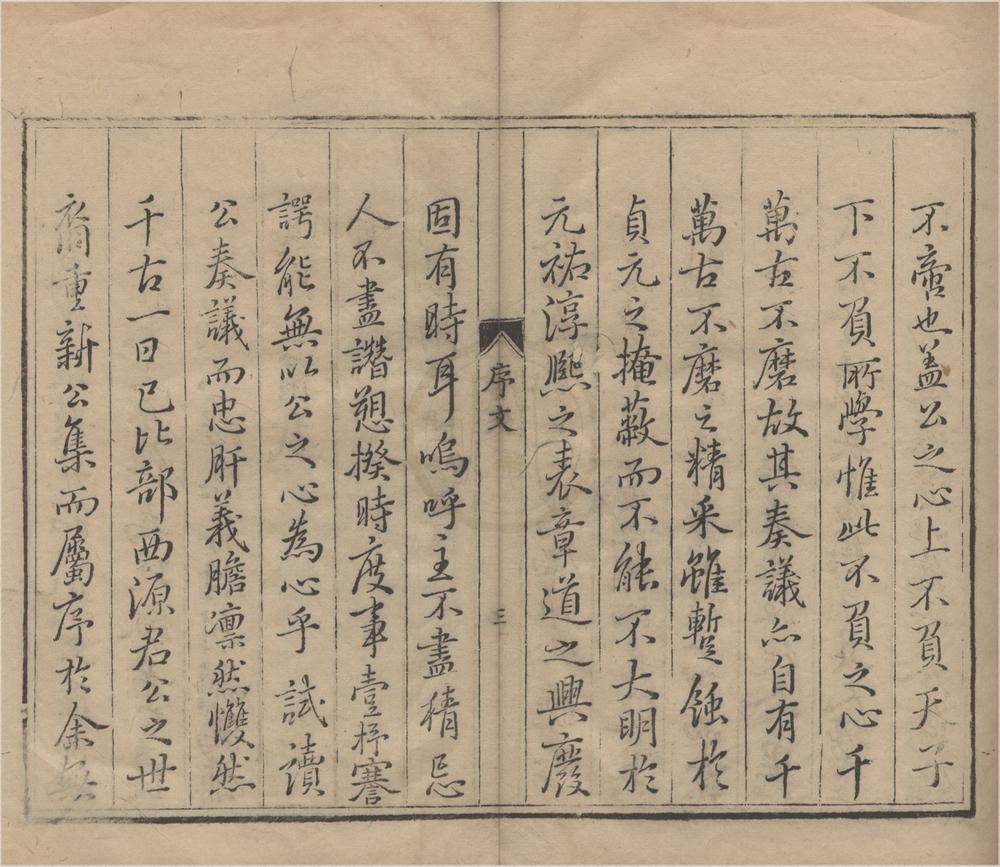 不啻也蓋公之心上不負天子
下不負所學惟此不負之心千
萬古不磨故其奏議亦自有千
萬古不磨之精采雖蹔蝕於
貞元之掩蔽而不能不大明於
元祐淳熙之表章道之興廢
序文
三
固有時耳嗚呼主不盡猜忌
人不盡譖愬揆時度事壹抒謇
諤能無以公之心為心乎試讀
公奏議而忠肝義膽凛然戄然
千古一日已比部西源君公之世
裔重新公集而屬序於余無